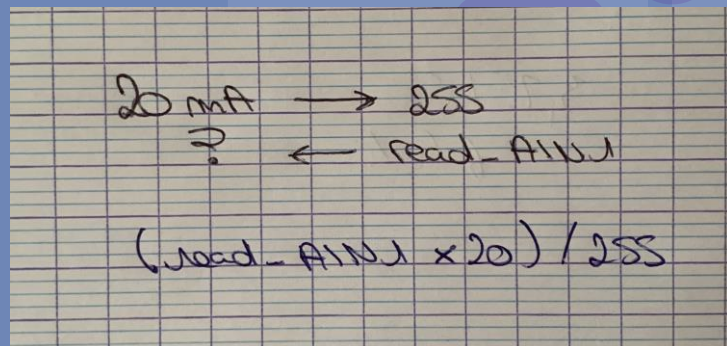 20 mA → 255
? ← read_AIN1
(read_AIN1 × 20) / 255